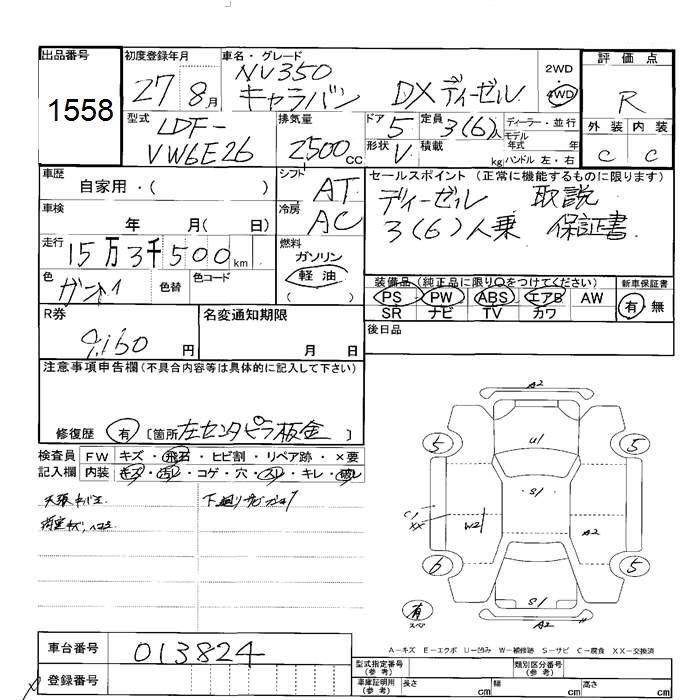 出品番号
1558
初度登録年月
27 8月
車名・グレード
NV350
キャラバン DX ディーゼル
2WD
4WD
評価点
R
外装 内装
C C
型式
LDF-
VW6E26
排気量
2500 CC
ドア 5
形状 V
定員 3(6)人
積載 kg
ディーラー・並行
モデル年式 年
ハンドル 左・右
車歴
自家用・( )
車検
年 月( 日)
走行
15万3千500km
色
色替
色コード
シフト
AT
冷房
AC
燃料
ガソリン
軽油
( )
セールスポイント(正常に機能するものに限ります)
ディーゼル 取説
3(6)人乗 保証書
装備品(純正品に限り○をつけてください)
PS PW ABS エアB AW
SR ナビ TV カワ
新車保証書
有 無
後日品
R券
9,160 円
名変通知期限
月 日
注意事項申告欄(不具合内容等は具体的に記入して下さい)
修復歴 有 〔箇所 左センタピラ板金 〕
検査員
記入欄
FW キズ・飛石・ヒビ割・リペア跡・×要
内装 キズ・汚レ・コゲ・穴・スレ・キレ・破レ
A2
5 U1 5
S1
C1
XX
W2
A2
6 5
S1
A2
有
スペア
A-キズ E-エクボ U-凹み W-補修跡 S-サビ C-腐食 XX-交換済
車台番号
013824
登録番号
型式指定番号
(参考)
類別区分番号
(参考)
車庫証明用
(参考)
長さ cm
幅 cm
高さ cm